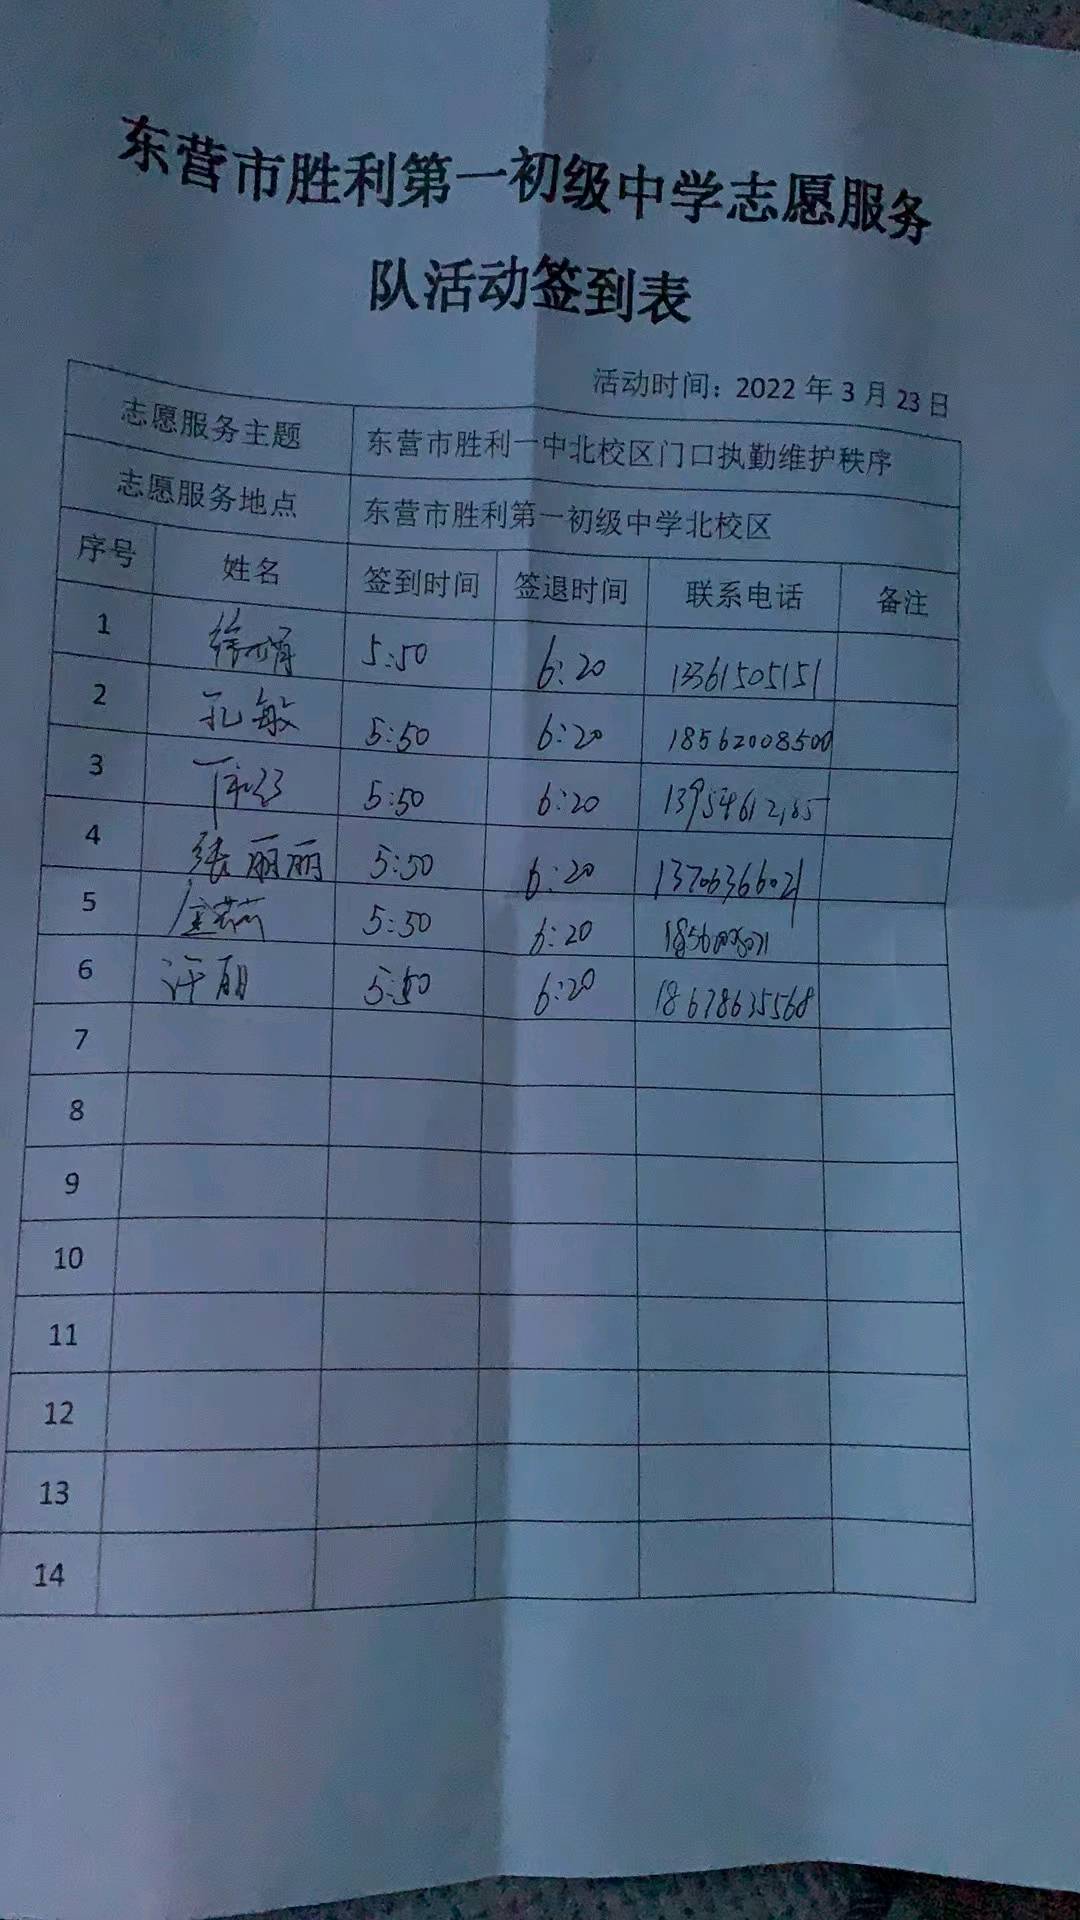 东营市胜利第一初级中学志愿服务
队活动签到表
活动时间：2022 年 3 月 23 日
志愿服务主题 东营市胜利一中北校区门口执勤维护秩序
志愿服务地点 东营市胜利第一初级中学北校区
序号 姓名 签到时间 签退时间 联系电话 备注
1 5:50 6:20 13361505151
2 孔敏 5:50 6:20 18562008500
3 5:50 6:20
4 张丽丽 5:50 6:20 13706366021
5 5:50 6:20
6 许丽 5:50 6:20 18678635568
7
8
9
10
11
12
13
14